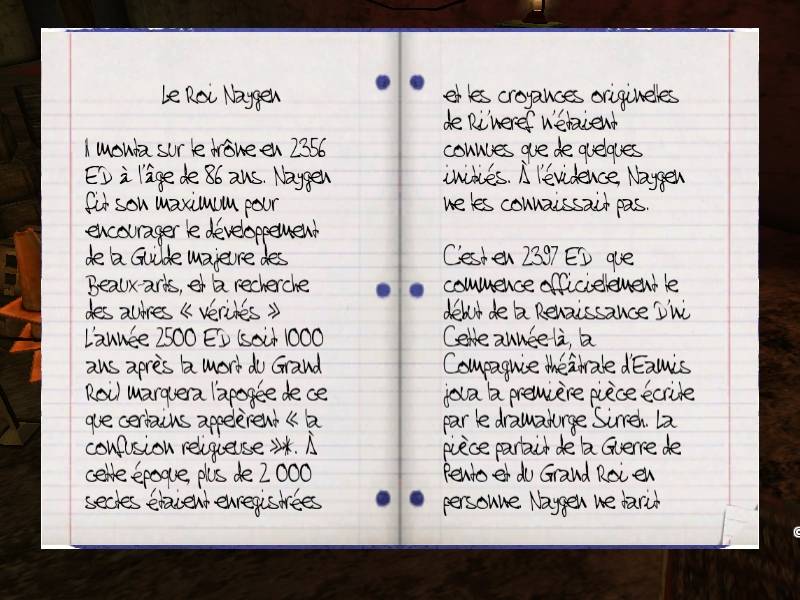 Le Roi Naygen
Il monta sur le trône en 2356
ED à l'âge de 86 ans. Naygen
fit son maximum pour
encourager le développement
de la Guilde majeure des
Beaux-arts, et la recherche
des autres « vérités »
L'année 2500 ED (soit 1000
ans après la mort du Grand
Roi) marquera l'apogée de ce
que certains appelèrent « la
confusion religieuse »*. À
cette époque, plus de 2 000
sectes étaient enregistrées
et les croyances originelles
de Ri'neref n'étaient
connues que de quelques
initiés. À l'évidence, Naygen
ne les connaissait pas.
C'est en 2397 ED que
commence officiellement le
début de la Renaissance D'ni
Cette année-là, la
Compagnie théâtrale d'Eamis
joua la première pièce écrite
par le dramaturge Sirreh. La
pièce parlait de la Guerre de
Pento et du Grand Roi en
personne. Naygen ne tarit
©